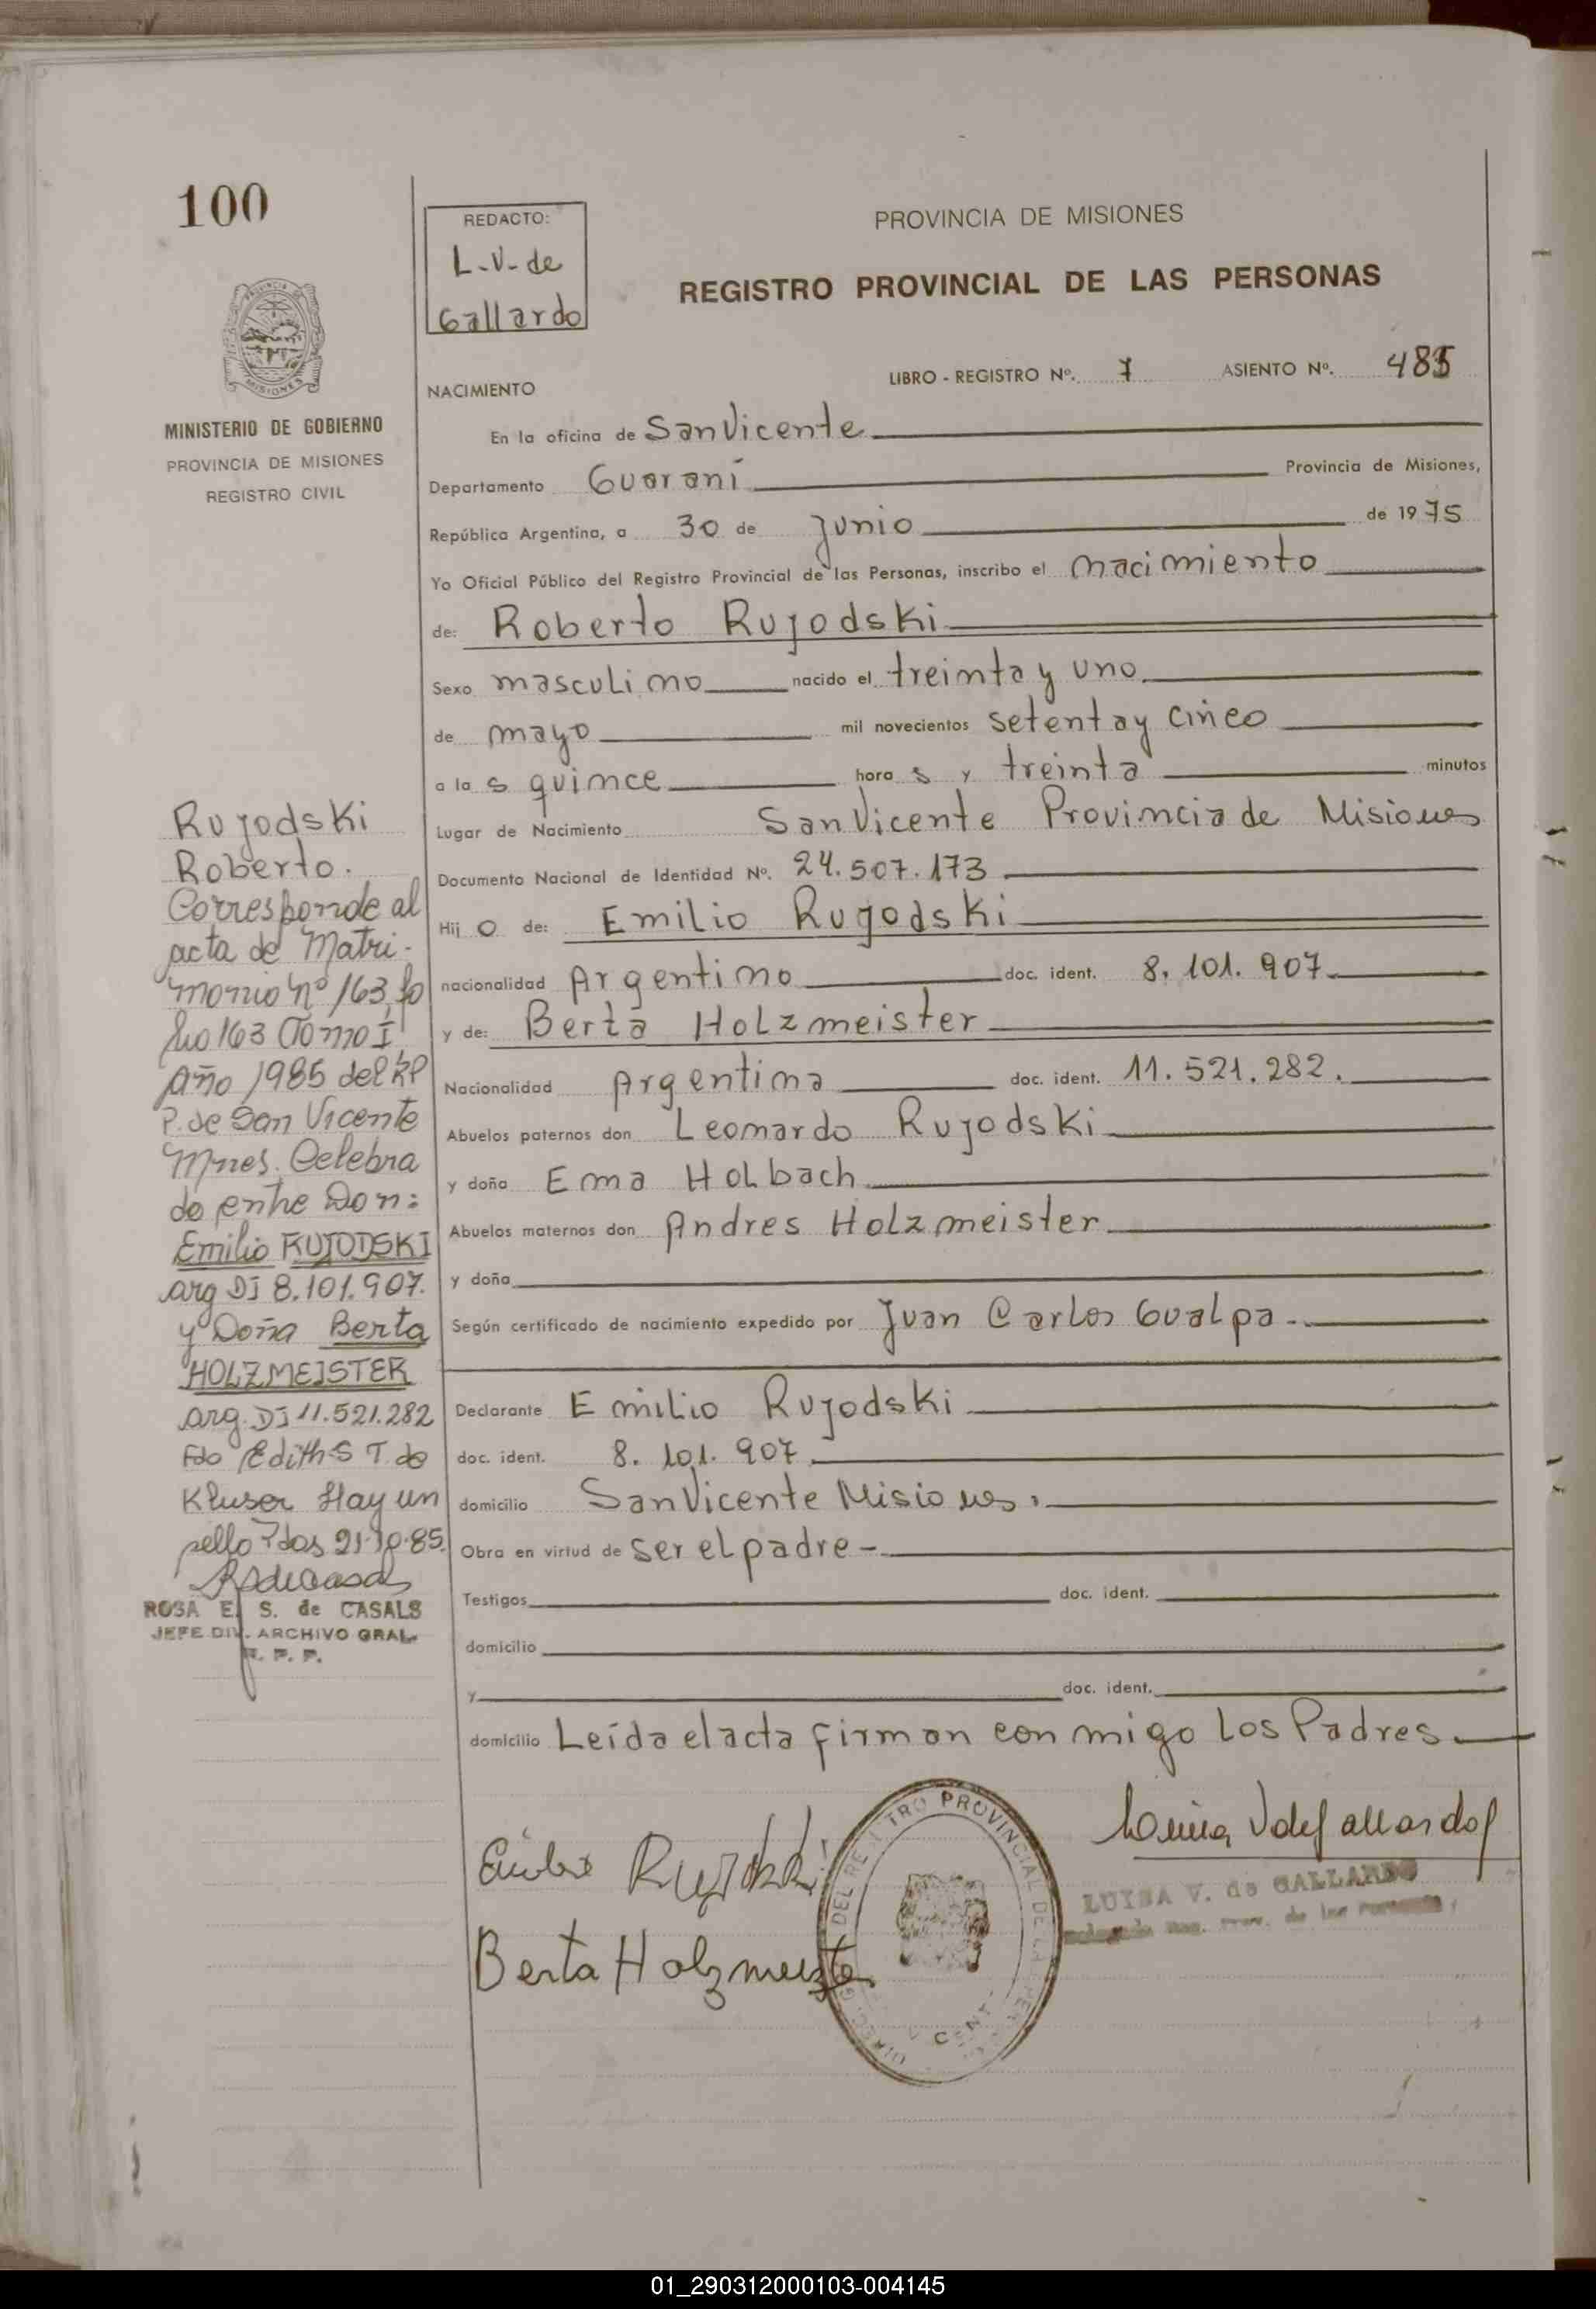 100
REDACTO:
L.V. de
Gallardo
PROVINCIA DE MISIONES
REGISTRO PROVINCIAL DE LAS PERSONAS
MINISTERIO DE GOBIERNO
PROVINCIA DE MISIONES
REGISTRO CIVIL
NACIMIENTO
LIBRO - REGISTRO Nº. 7 ASIENTO Nº.
En la oficina de San Vicente
Departamento Guaraní Provincia de Misiones,
República Argentina, a 30 de Junio de 1975
Yo Oficial Público del Registro Provincial de las Personas, inscribo el nacimiento
de: Roberto Rujodski
Sexo masculino nacido el treinta y uno
de mayo mil novecientos setenta y cinco
a las quince horas y treinta minutos
Lugar de Nacimiento San Vicente Provincia de Misiones
Documento Nacional de Identidad Nº. 24.507.173
Hijo de: Emilio Rujodski
nacionalidad Argentino doc. ident. 8.101.907
y de: Berta Holzmeister
Nacionalidad Argentina doc. ident. 11.521.282.
Abuelos paternos don Leonardo Rujodski
y doña Ema Holbach
Abuelos maternos don Andres Holzmeister
y doña
Según certificado de nacimiento expedido por Juan Carlos Gualpa.-
Declarante Emilio Rujodski
doc. ident. 8.101.907
domicilio San Vicente Misiones.
Obra en virtud de ser el padre-
Testigos doc. ident.
domicilio
y doc. ident.
domicilio Leída el acta firman conmigo los Padres
Rujodski
Roberto.
Corresponde al
acta de Matri-
monio nº 163 fo
lio 163 Tomo I
Año 1985 del RP
P. de San Vicente
Mnes. Celebra
do entre Don:
Emilio RUJODSKI
arg DI 8.101.907.
y Doña Berta
HOLZMEISTER
arg. DI 11.521.282
Fdo Edith S T. de
Kluser Hay un
sello Pdas 21-10-85.
ROSA E. S. de CASALS
JEFE DIV. ARCHIVO GRAL.
R. P. P.
Emilio Rujodski
Berta Holzmeister
Luisa V de Gallardo
LUISA V. de GALLARDO
DEL REGISTRO PROVINCIAL DE LA
01_290312000103-004145